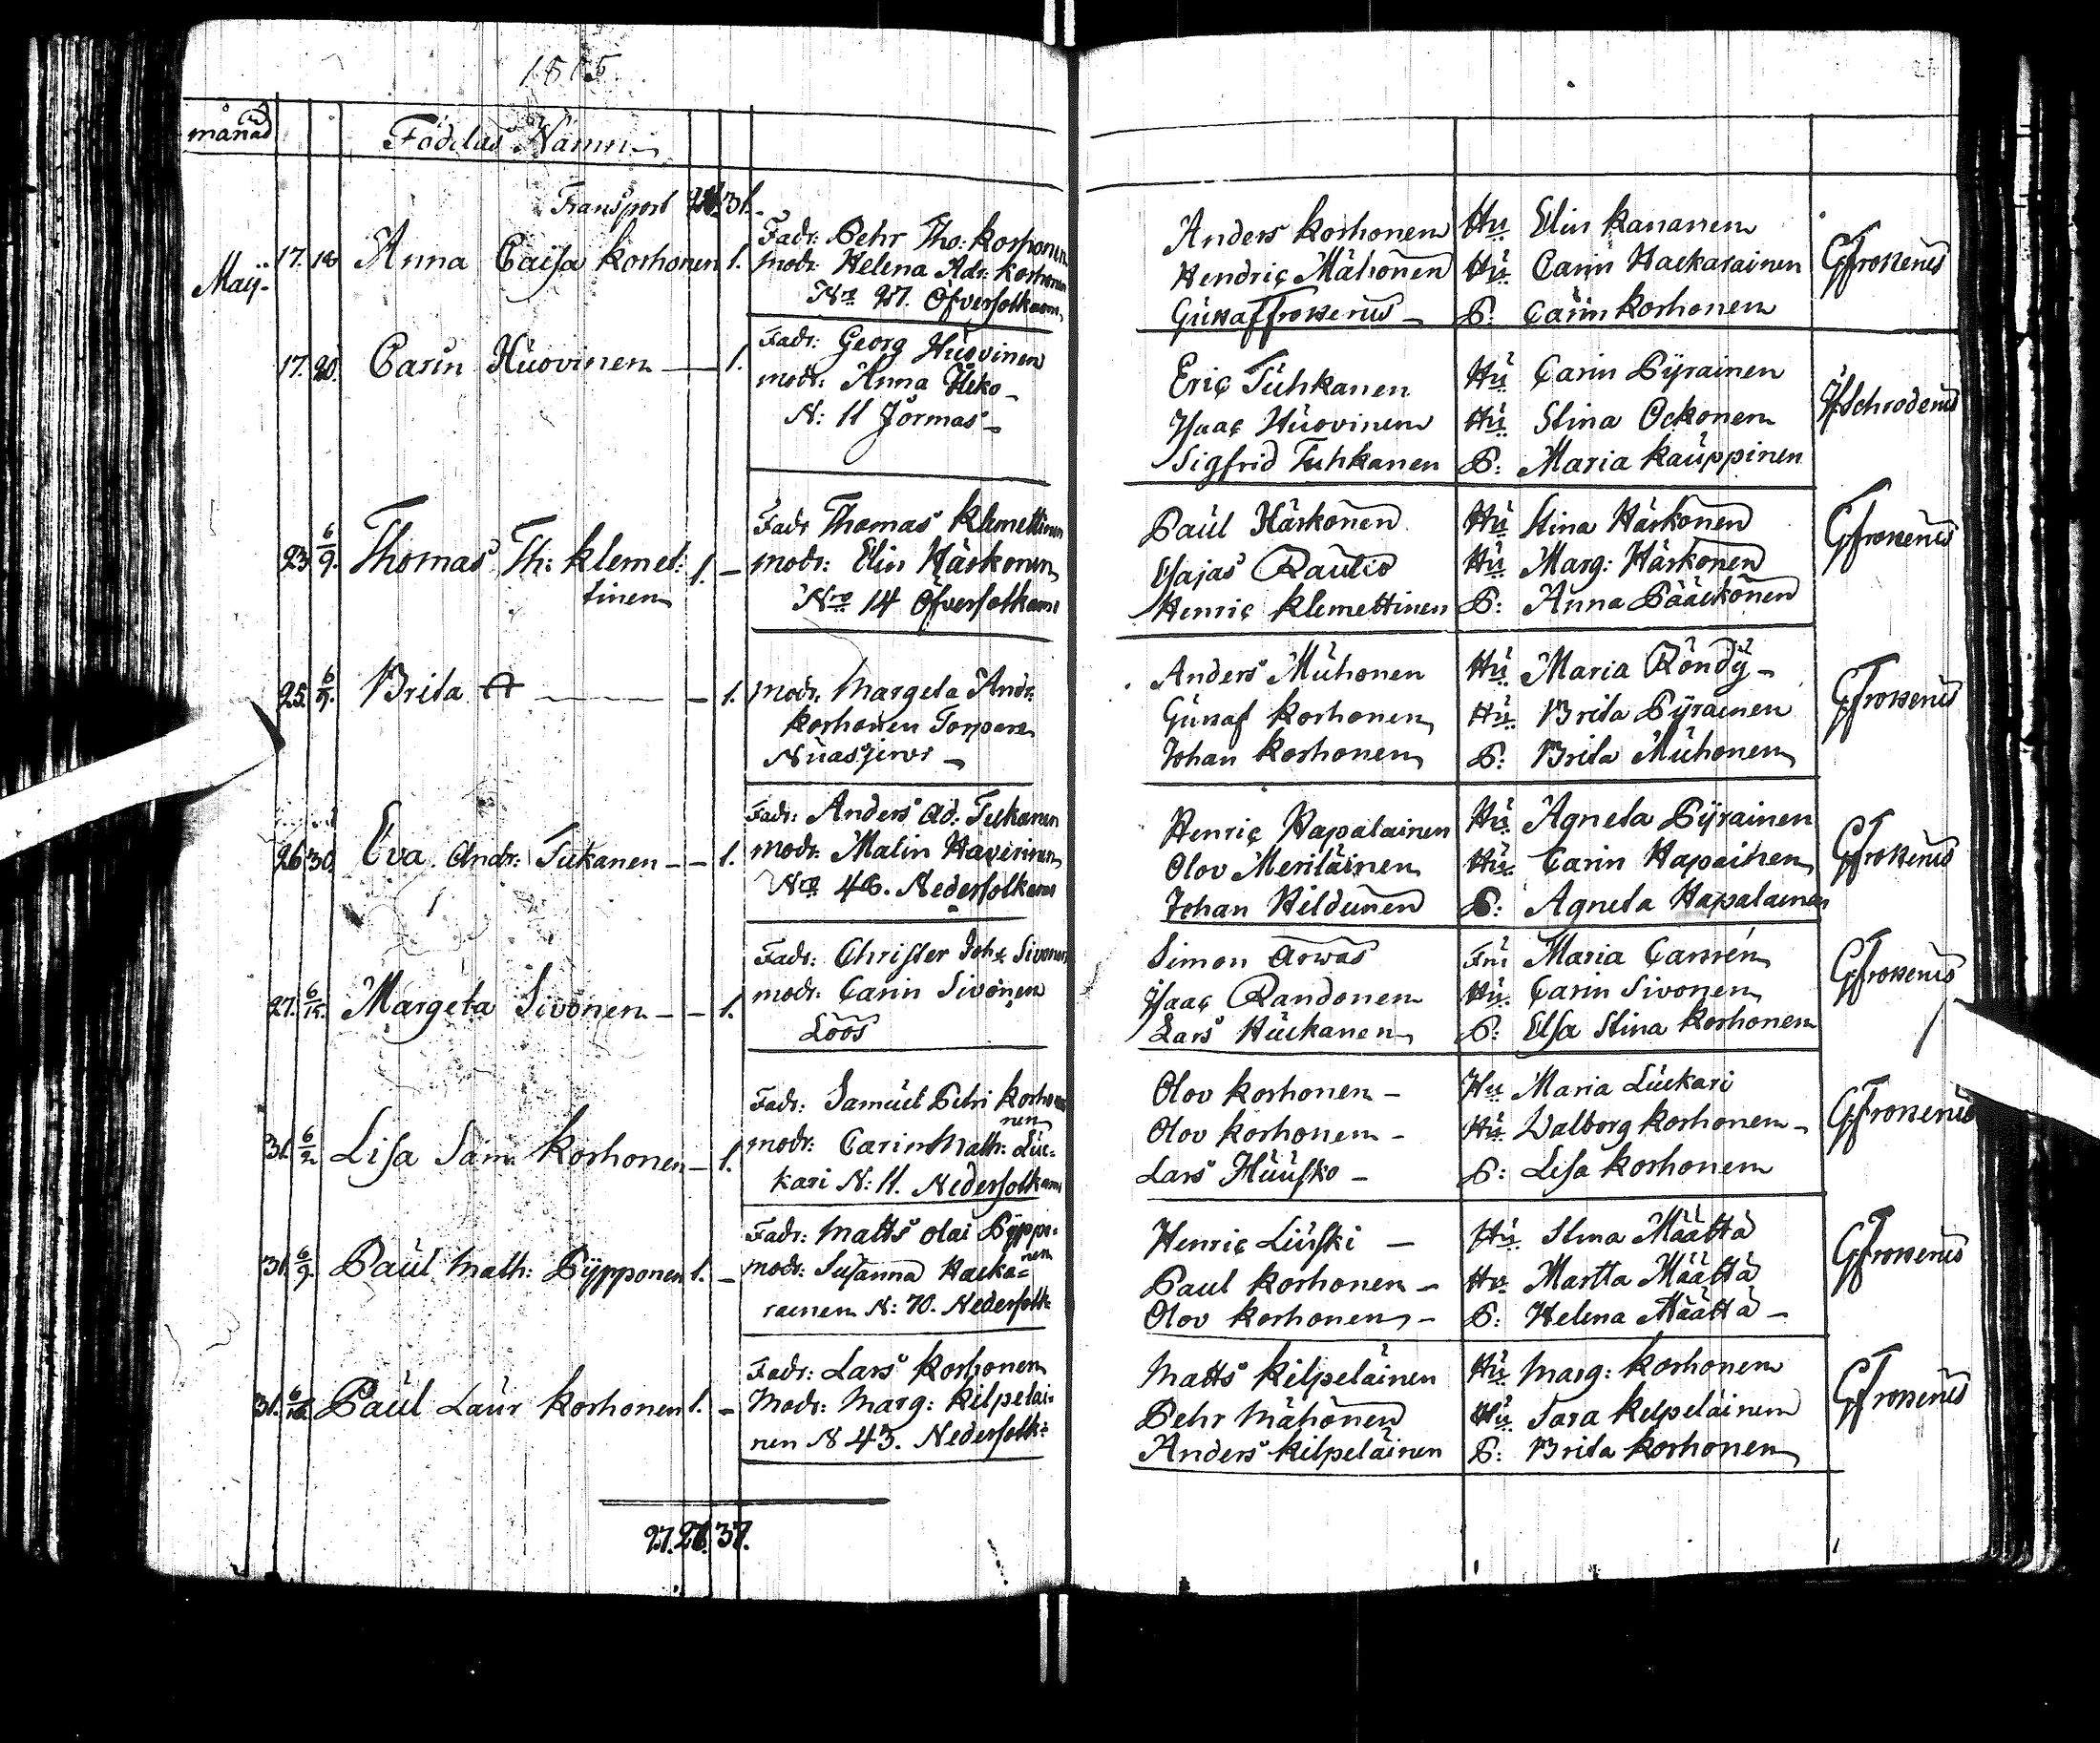 1805.
månad
Födelas Namn
Transport 31.
Maÿ. 17. 18 Anna Caisa Korhonen 1.
Fadr: Pehr Tho: Korhonen
modr: Helena Adr: Korhonen
Nro 27. Öfversotkamo
Anders Korhonen Hu Elin Kananen
Hendric Mähönen Hu Carin Haekarainen
Gustaf Frosterus P: Carin Korhonen
GFrosterus
17. 20. Carin Huovinen 1.
Fadr: Georg Huovinen
modr: Anna Heiko
N: 11 Jormas
Eric Tuhkanen Hu Carin Pyrainen
Isaac Huovinen Hu Stina Ockonen
Sigfrid Tuhkanen P: Maria Kauppinen
HSchroderus
23 6/9. Thomas Th: Klemet: 1. –
tinen
Fadr Thomas Klemettinen
modr: Elin Härkönen
Nro 14 Öfversotkamo
Paul Härkönen Hu Stina Härkönen
Esajas Rautio Hu Marg: Härkönen
Henric Klemettinen P: Anna Pääckönen
GFrosterus
25. 6/9. Brita – 1.
modr: Margeta Andr:
Korhonen Torpare
Nuasjervi
Anders Muhonen Hu Maria Röndy
Gustaf Korhonen Hu Brita Pyrainen
Johan Korhonen P: Brita Muhonen
GFrosterus
26 30 Eva Andr: Tukanen – – 1.
Fadr: Anders Ad: Tukanen
modr: Malin Haverinen
Nro 46. Nedersotkamo
Henric Hapalainen Hu Agneta Pyrainen
Olov Meriläinen Hu Carin Hapainen
Johan Hildunen P: Agneta Hapalainen
GFrosterus
27. 6/15. Margeta Sivonen – – 1.
Fadr: Christer Joh: Sivonen
modr: Carin Sivonen
Löös
Simon Arwas Fru Maria Camrén
Isaac Randonen Hu Carin Sivonen
Lars Huckanen P: Elsa Stina Korhonen
GFrosterus
31. 6/2 Lisa Sam: Korhonen – 1.
Fadr: Samuel Petri Korho
nen
modr: Carin Math: Luc=
kari N: 11. Nedersotkamo
Olov Korhonen – Hu Maria Luckari
Olov Korhonen – Hu Walborg Korhonen –
Lars Huusko – P: Lisa Korhonen
GFrosterus
31. 6/9. Paul Math: Pypponen 1. –
Fadr: Matts Olai Pyppo=
nen
modr: Susanna Haeka=
rainen N: 70. Nedersotk:
Henric Liuski – Hu Stina Määttä
Paul Korhonen – Hu Martta Määttä
Olov Korhonen – P: Helena Määttä –
GFrosterus
31. Paul Laur Korhonen 1. –
Fadr: Lars Korhonen
Modr: Marg: Kilpeläi=
nen N 43. Nedersotk:
Matts Kilpeläinen Hu Marg: Korhonen
Pehr Mähönen Hu Sara Kelpeläinen
Anders Kilpeläinen P: Brita Korhonen
GFrosterus
27. 37.